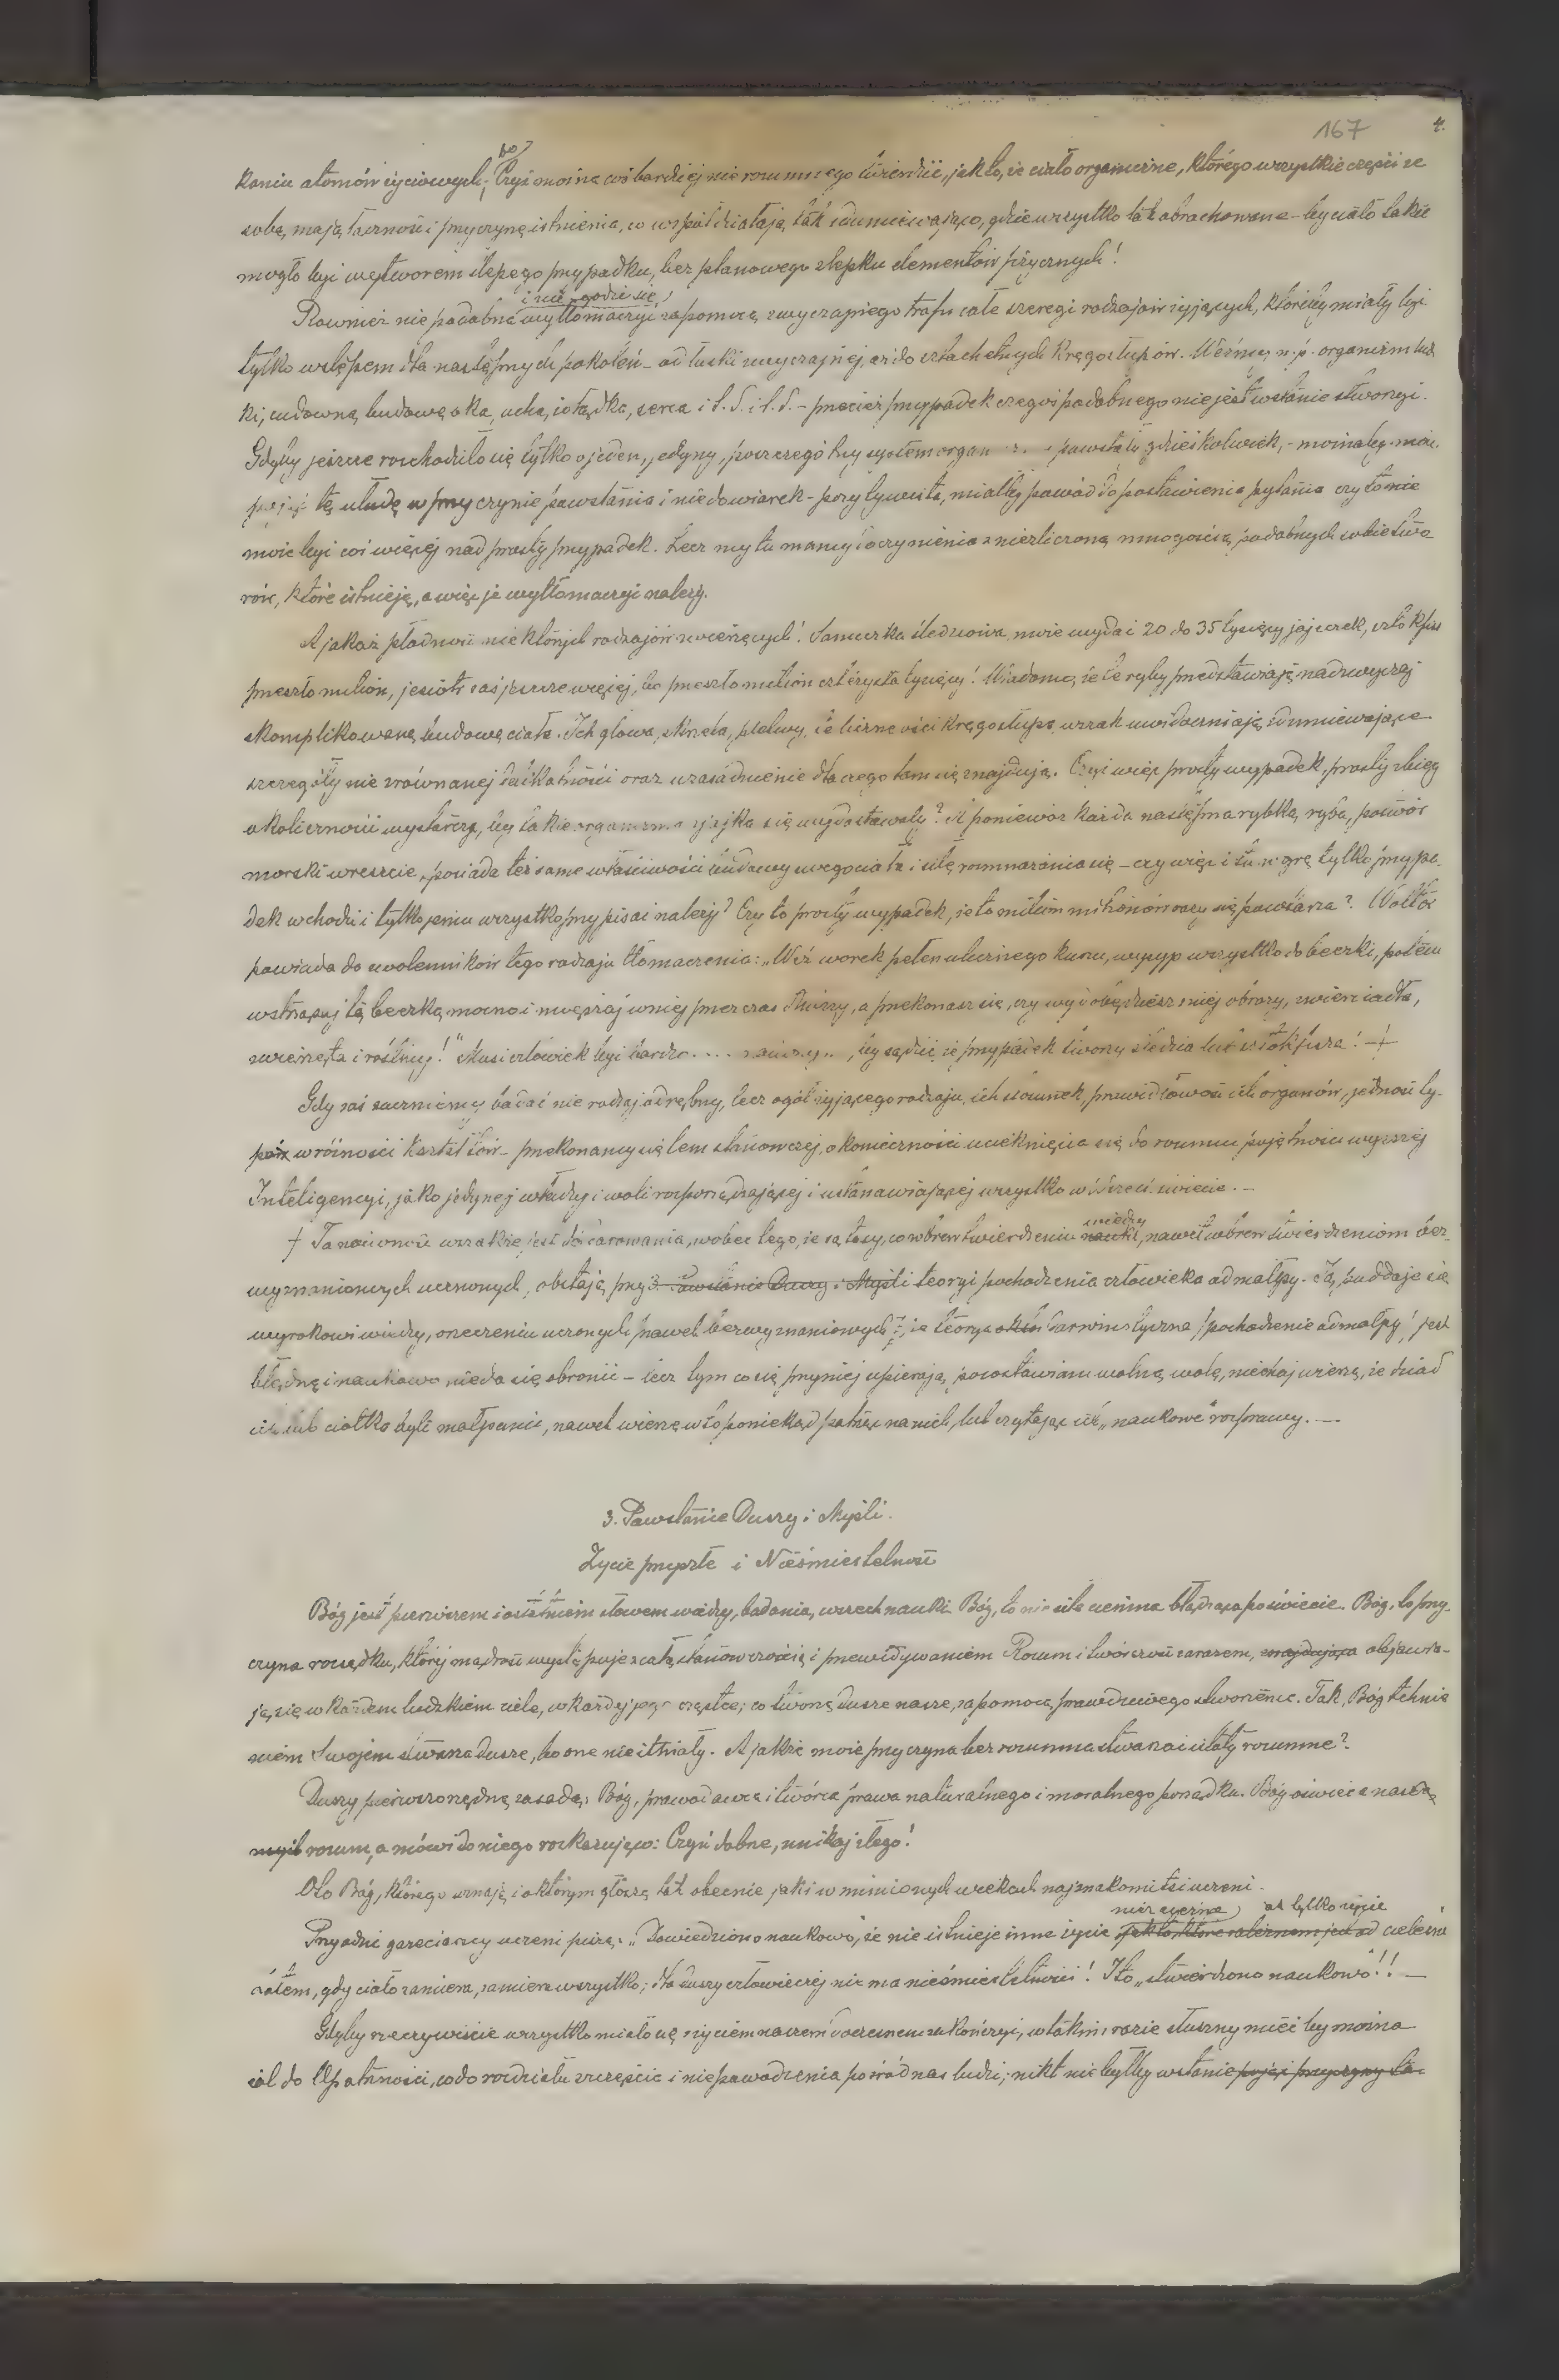 167
4.
bo
kaniu atomów życiowych; Czyż można coś bardziej nierozumnego twierdzić, jak to, że ciało organiczne, którego wszystkie części ze
sobą mają łączność i przyczynę istnienia, co współdziałają tak zdumiewająco, gdzie wszystko tak obrachowane – by ciało takie
mogło być wytworem ślepego przypadku, bez planowego zlepku elementów fizycznych!
i nie godzi się
Rownież nie podobna wytłomaczyć za pomocą zwyczajnego trafu całe szeregi rodzajów żyjących, któreby miały być
tylko wstępem dla następnych pokoleń – od łuski zwyczajnej, aż do szlachetnych kręgosłupów. Weźmy n.p. organizm ludz
ki, cudowną budowę oka, ucha, żołądka, serca i t.d. i t.d. – przecież przypadek czegoś podobnego nie jest wstanie stworzyć.
Gdyby jeszcze rozchodziło się tylko o jeden, jedyny, poszczególny system powstały gdzieśkolwiek, – możnaby
tę ułudę w przyczynie powstania i niedowiarek – pozytywista, miałby powód do postawienia pytania czy to nie
może być coś więcej nad prosty przypadek. Lecz my tu mamy do czynienia z niezliczoną mnogością podobnych sobie two
rów, które istnieją, a więc je wytłomaczyć należy.
A jakaż płodność niektórych rodzajów zwierzęcych! Samiczka śledziowa może wydać 20 do 35 tysięcy jajeczek, sztokfisz
przeszło milion, jesiotr zaś jeszcze więcej, bo przeszło milion czterysta tysięcy! Wiadomo, że te ryby przedstawiają nadzwyczaj
skomplikowaną budowę ciała. Ich głowa, skrzela, pletwy, te liczne ości kręgosłupa, wzrok uwidaczniają zdumiewające
szczegóły niezrównanej delikatności oraz uzasadnienie dlaczego tam się znajdują. Czyż więc prosty wypadek, prosty zbieg
okoliczności wystarczy, by takie z jajka się wydostawały? A ponieważ każda następna rybka, ryba, potwór
morski wreszcie, posiada też same właściwości budowy swego ciała i siłę rozmnażania się – czy więc i tu w grę tylko przypa-
dek wchodzi i tylko jemu wszystko przypisać należy? Czy to prosty wypadek, że to milion milionów razy się powtarza? Woltér
powiada do zwolenników tego rodzaju tłomaczenia: „Weź worek pełen ulicznego kurzu, wysyp wszystko do beczki, potem
wstrząsaj tą beczką mocno i mięszaj w niej przez czas dłuższy, a przekonasz się, czy wydobędziesz z niej obrazy, zwierciadła,
zwierzęta i rośliny!" Musi człowiek być bardzo , by sądzić, że przypadek tworzy śledzia lub sztokfisza! –+
Gdy zaś zaczniemy badać nie rodzaj odrębny, lecz ogół żyjącego rodzaju, ich stosunek, prawidłowość ich organów, jedność ty-
pów w różności kształtów – przekonamy się tem stanowczej, o konieczności ucieknięcia się do rozumu potężności wyższej
Inteligencyi, jako jedynej władzy i woli rozporządzającej i ustanawiającej wszystko w Wszechświecie. –
wiedzy
+ Ta naiwność wszakże jest do darowania, wobec tego, że są tacy, co wbrew twierdzeniu nauki, nawet wbrew twierdzeniom bez-
wyznaniowych uczonych, obstają przy 3. Powstanie Duszy i Myśli teoryi pochodzenia człowieka od małpy. Ja, poddaję się
wyrokowi wiedzy, orzeczeniu uczonych (nawet bezwyznaniowych), że teorya darwinistyczna (pochodzenie od małpy) jest
błędną i naukowo nieda się obronić – lecz tym co się przy niej upierają, pozostawiam wolną wolę, niechaj wierzą, że dziad
ich lub ciotka byli małpami, nawet wierzę w to poniekąd patrząc na nich, lub czytając ich „naukowe" rozprawy. —
3. Powstanie Duszy i Myśli.
Życie przyszłe i Nieśmiertelność
Bóg jest pierwszem i ostatniem słowem wiedzy, badania, wszechnauki. Bóg, to nie siła ciemna błądząca po świecie. Bóg, to przy-
czyna rozsądku, której mądrość występuje z całą stanowczością i przewidywaniem. Rozum i twórczość zarazem, znajdująca objawia-
ją się w każdem ludzkiem ciele, w każdej jego cząstce; co tworzą dusze nasze, za pomocą prawdziwego stworzenia. Tak, Bóg tchnie
niem Swojem stwarza dusze, bo one nie istniały. A jakże może przyczyna bez rozumna stwarzać istoty rozumne?
Duszy pierwszorzędną zasadą: Bóg, prawodawca i twórca prawa naturalnego i moralnego porządku. Bóg oświeca naszą
myśl rozum, a mówi do niego rozkazująco: Czyń dobre, unikaj złego!
Oto Bóg, którego uznają i o którym głoszą tak obecnie jak i w minionych wiekach najznakomitsi uczeni.
niezależne od tylko życie
Przyodni gazeciarscy uczeni piszą: „Dowiedziono naukowo, że nie istnieje inne życie jak to, które zależnem jest od cieleśni
zatem, gdy ciało zamiera, zamiera wszystko; dla duszy człowieczej nie ma nieśmiertelności! I to „stwierdzono naukowo"!! —
Gdyby rzeczywiście wszystko miało się z życiem naszem doczesnem zakończyć, w takim razie słuszny mieć by można
żal do Opatrzności, co do rozdziału szczęścia i niepowodzenia pośród nas ludzi; nikt nie byłby wstanie pojąć przyczyny ta-